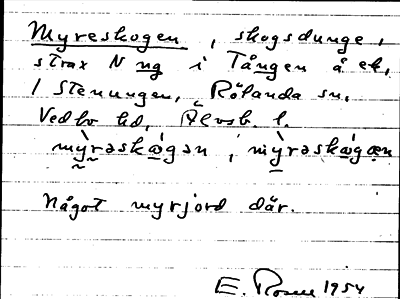 Myreskogen, skogsdunge,
strax N ng i Tången å ek,
1 Stenungen, Rölanda sn,
Vedbo hd, Älvsb. l.
mỳrəskωgən, mỳrəskωgæn
Något myrjord där.
E. Rosell 1954